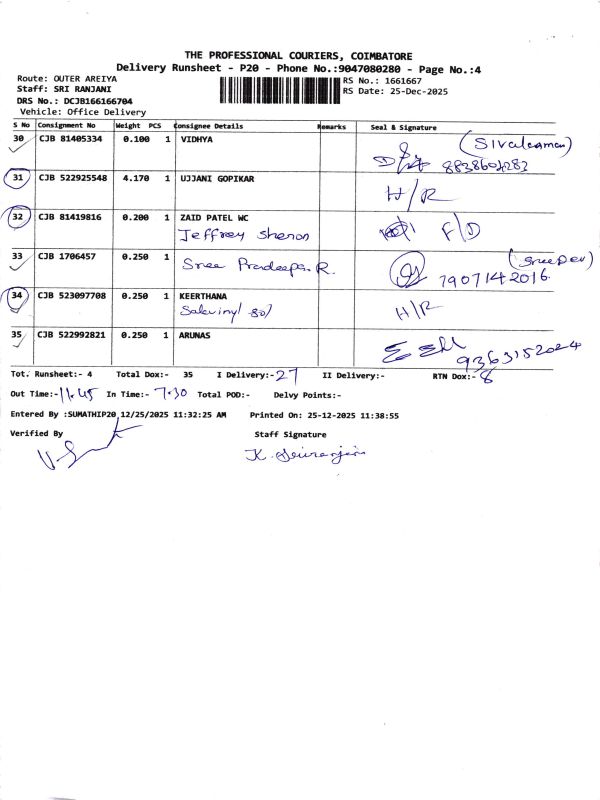 THE PROFESSIONAL COURIERS, COIMBATORE
Delivery Runsheet - P20 - Phone No.:9047080280 - Page No.:4
Route: OUTER AREIYA
RS No.: 1661667
Staff: SRI RANJANI
RS Date: 25-Dec-2025
DRS No.: DCJB166166704
Vehicle: Office Delivery
S No Consignment No Weight PCS Consignee Details Remarks Seal & Signature
30 CJB 81405334 0.100 1 VIDHYA
31 CJB 522925548 4.170 1 UJJANI GOPIKAR H/R
32 CJB 81419816 0.200 1 ZAID PATEL WC
Jeffrey Sharon F/D
33 CJB 1706457 0.250 1 Sree Pradeepa. R. (Sreedev)
7907142016
34 CJB 523097708 0.250 1 KEERTHANA H/R
35 CJB 522992821 0.250 1 ARUNAS
9363152024
Tot. Runsheet:- 4 Total Dox:- 35 I Delivery:- 27 II Delivery:- RTN Dox:- 8
Out Time:- 11.45 In Time:- 7.30 Total POD:- Delvy Points:-
Entered By :SUMATHIP20,12/25/2025 11:32:25 AM Printed On: 25-12-2025 11:38:55
Verified By Staff Signature